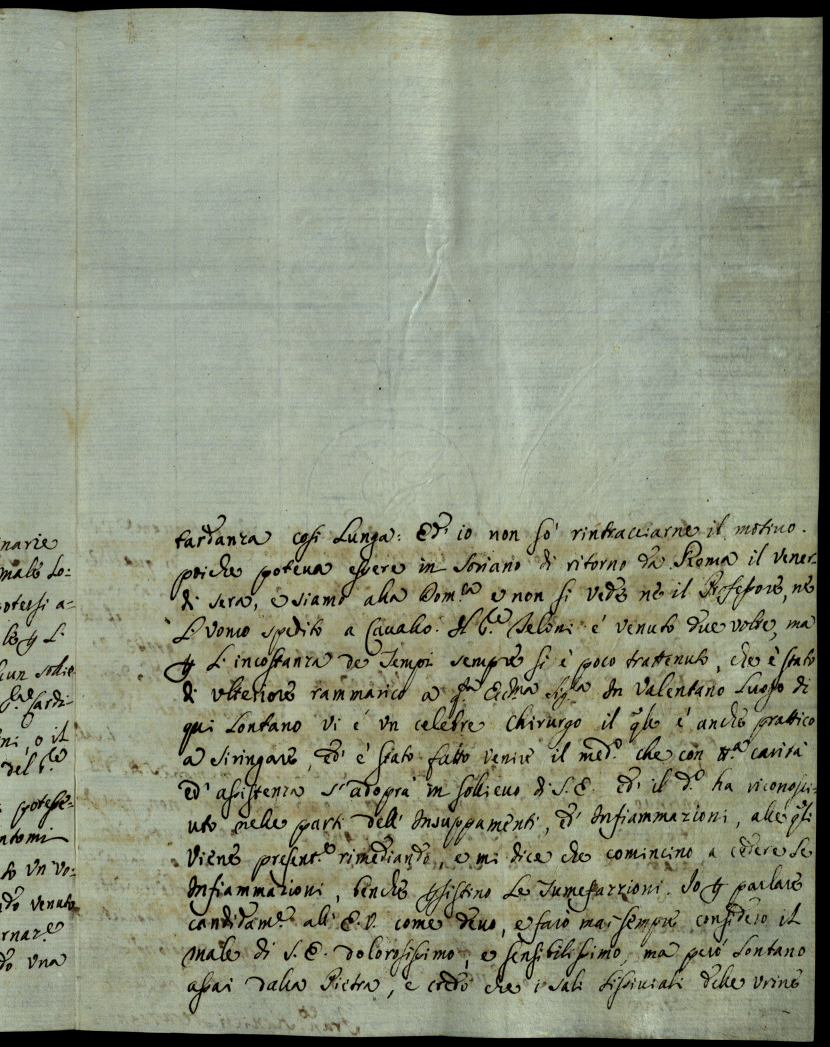 narie
male Lo:
potersi a=
le ꝑ L.
cun solie
Cardi-
ni, o il
del S.re
potesse
ntomi
to vn vo-
do venuto
rnar.e
do vna
tardanza così Lunga: Ed' io non sò rintracciarne il motivo.
poiche poteva essere in Soriano di ritorno da Roma il vener-
di sera, e siamo alla Dom.ca e non si vede ne il Professore, ne
L'Vomo spedito a Cavallo. Il S.re Belòni è venuto due volte, ma
ꝑ L'incostanza de Tempi sempre si è poco trattenuto, che è stato
di vlteriore rammarico a q.sta Ecc.ma Sig.ra In Valentano Luogo di
qui Lontano vi è vn celebre Chirurgo il q.le è anche prattico
a siringare, ed' è stato fatto venire il med.o che con tt.a carità
ed' assistenza s'adopra in sollievo di S.E. ed' il d.o ha riconosci-
uto nelle parti dell' Insuppamenti, ed' Infiammazioni, alle q.li
viene present.e rimediando, e mi dice che comincino a cedere Le
Infiammazioni, benche ꝑsistino Le Tumefazzioni. Io ꝑ parlare
candidam.e all' E.V. come devo, e farò mai sempre considero il
male di S.E. dolorosissimo, e sensibilissimo, ma però Lontano
assai dalla Pietra, e credo che i sali Lissiviali delle vrine